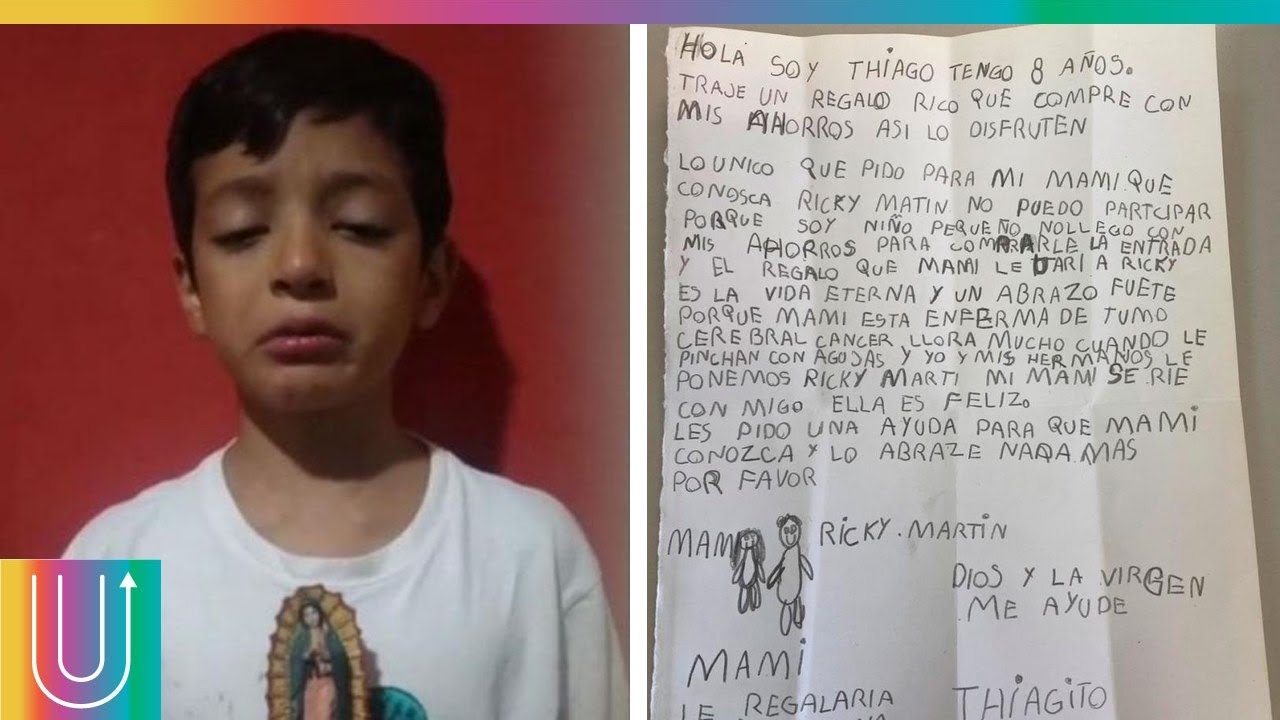 HOLA SOY THIAGO TENGO 8 AÑOS.
TRAJE UN REGALO RICO QUE COMPRE CON
MIS AHORROS ASI LO DISFRUTEN
LO UNICO QUE PIDO PARA MI MAMI QUE
CONOSCA RICKY MATIN NO PUEDO PARTCIPAR
PORQUE SOY NIÑO PEQUEÑO NOLLEGO CON
MIS AHORROS PARA COMPRARLE LA ENTRADA
Y EL REGALO QUE MAMI LE DARI A RICKY
ES LA VIDA ETERNA Y UN ABRAZO FUETE
PORQUE MAMI ESTA ENFERMA DE TUMO
CEREBRAL CANCER LLORA MUCHO CUANDO LE
PINCHAN CON AGUJAS Y YO Y MIS HERMANOS LE
PONEMOS RICKY MARTI MI MAMI SE RIE
CON MIGO ELLA ES FELIZ.
LES PIDO UNA AYUDA PARA QUE MAMI
CONOZCA Y LO ABRAZE NADA.MAS
POR FAVOR
MAMI RICKY.MARTIN
DIOS Y LA VIRGEN
ME AYUDE
MAMI
LE REGALARIA
THIAGITO
U